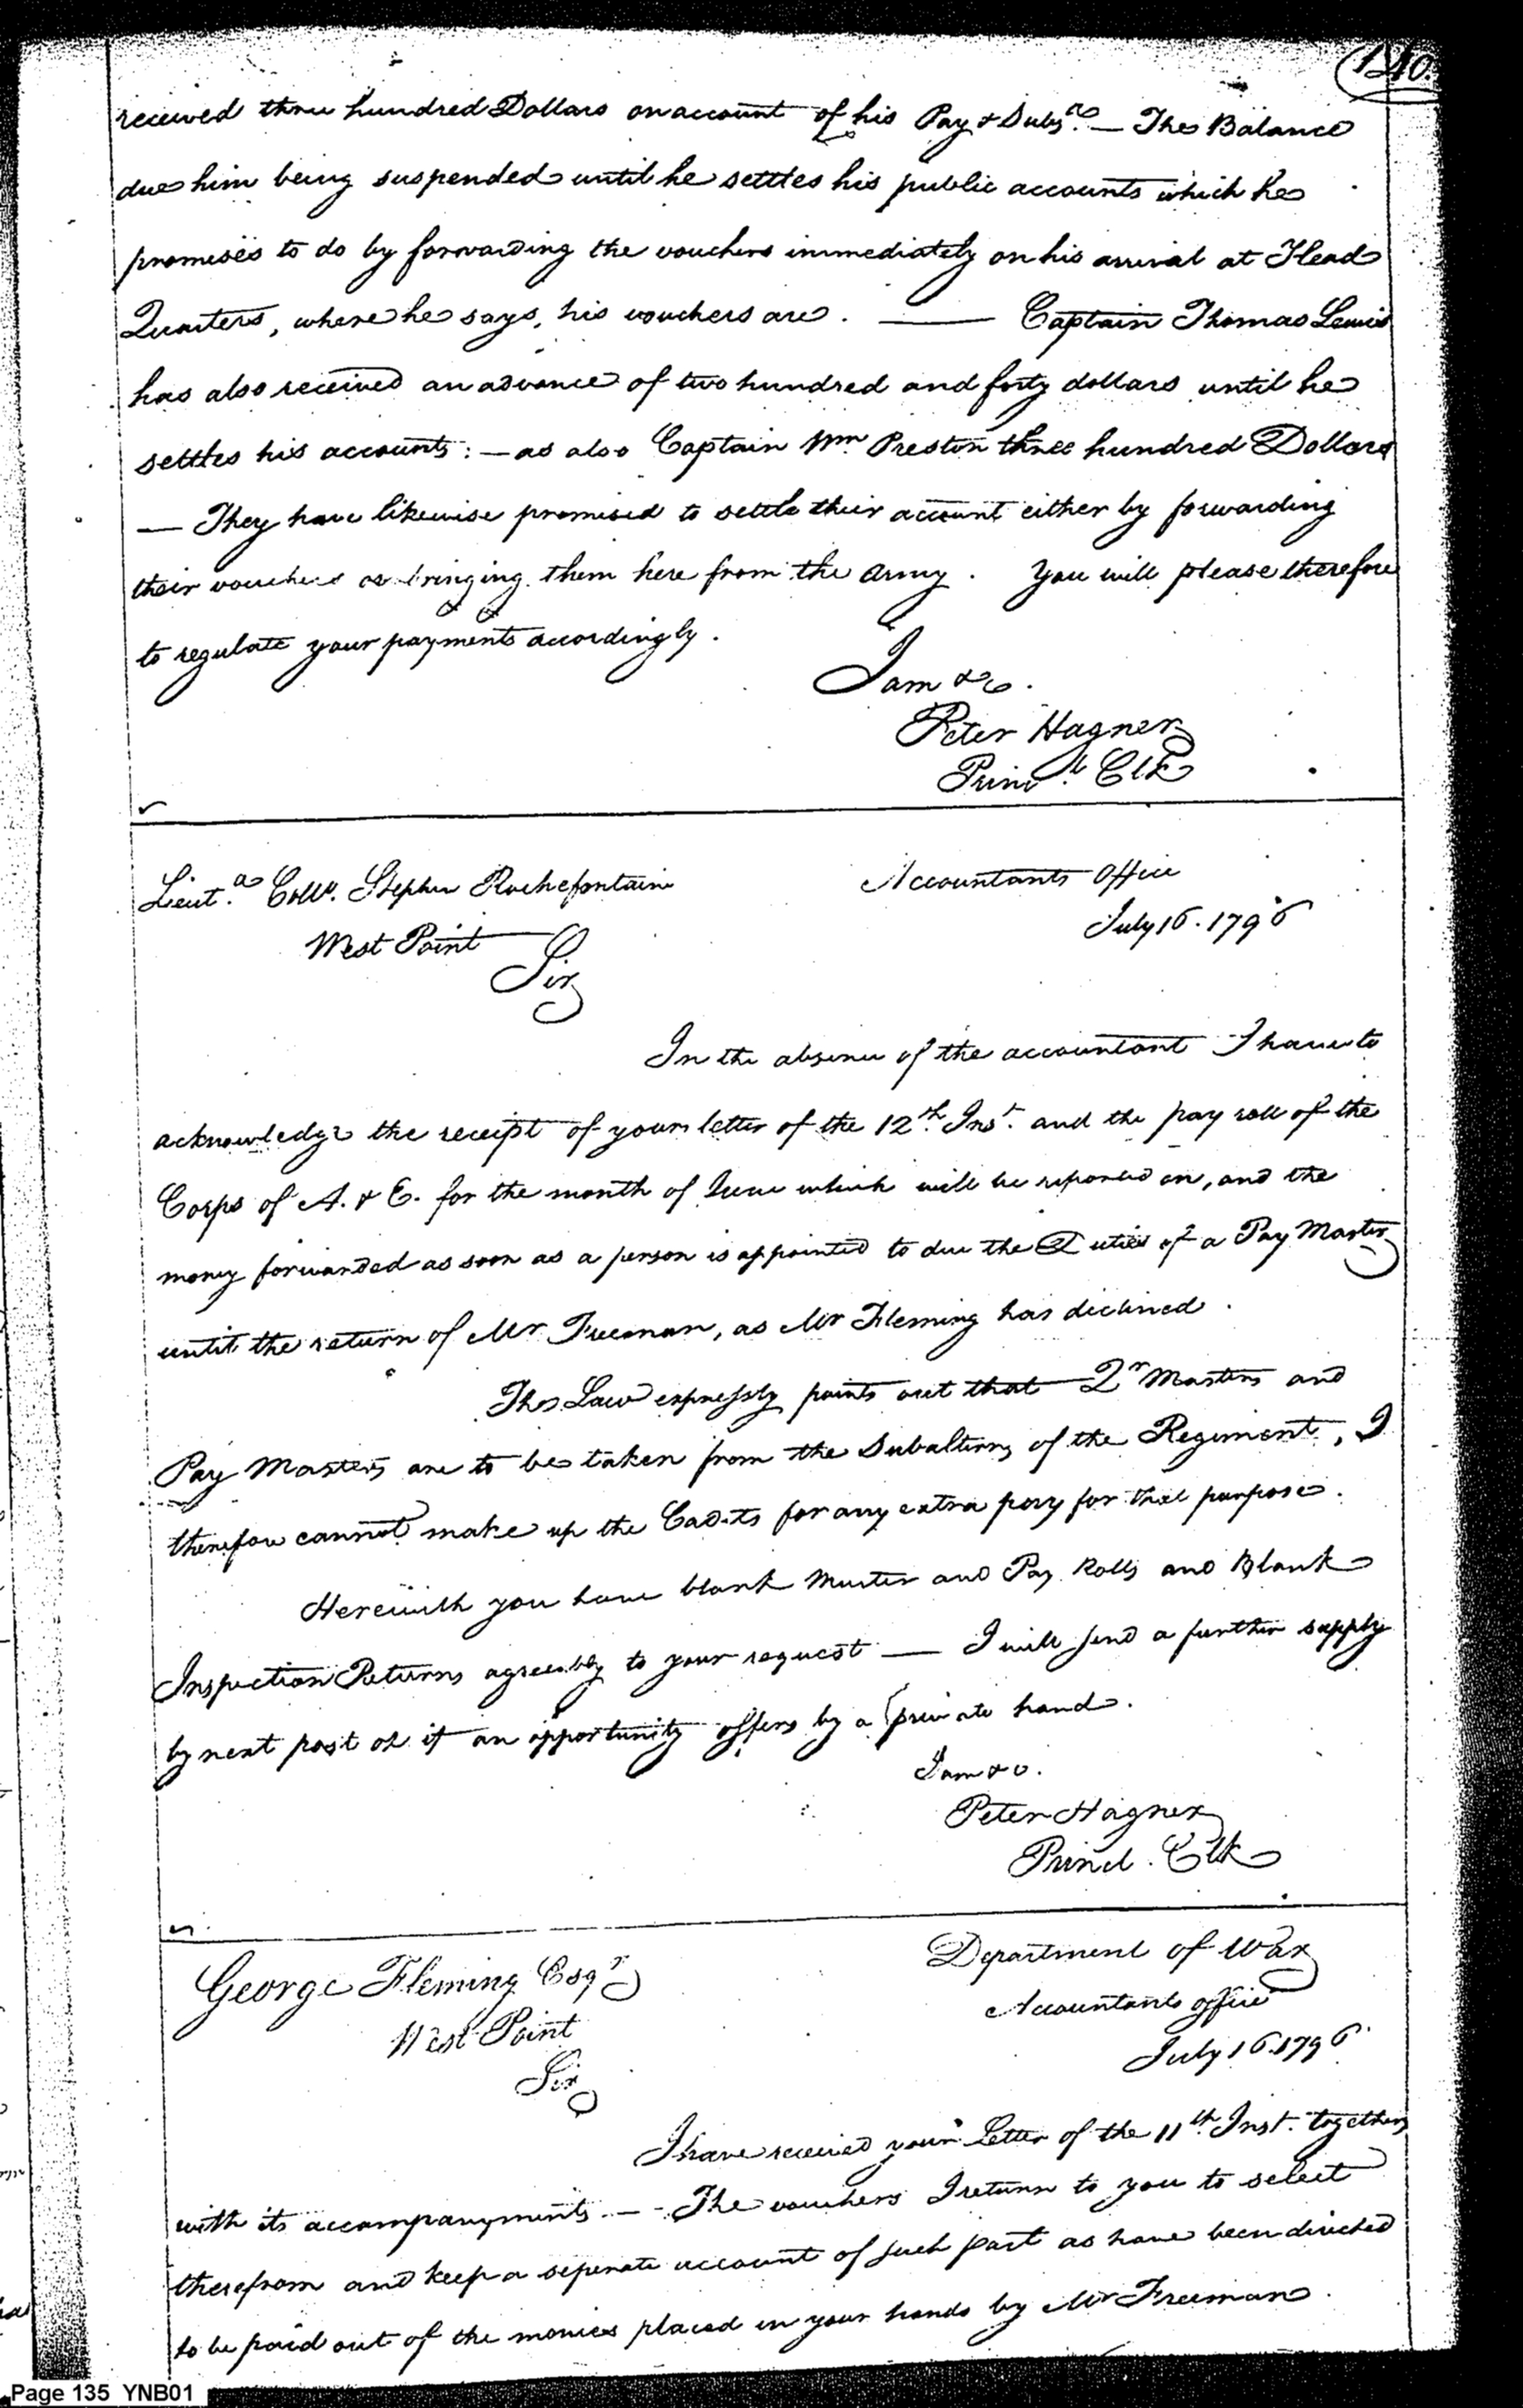 140.
received three hundred Dollars on account of his Pay & Subs.ce — The Balance
due him being suspended until he settles his public accounts which he
promises to do by forwarding the vouchers immediately on his arrival at Head
Quarters, where he says, his vouchers are. — Captain Thomas Lewis
has also received an advance of two hundred and forty dollars until he
settles his accounts: — as also Captain Wm. Preston three hundred Dollars
— They have likewise promised to settle their account either by forwarding
their vouchers or bringing them here from the Army. You will please therefore
to regulate your payments accordingly.
I am &c.
Peter Hagner
Prinl. Clk
Lieut. Coll. Stephen Rochefontain
Accountants Office
July 16. 1796
West Point
Sir
In the absence of the accountant I have to
acknowledge the receipt of your letter of the 12th. Inst. and the pay roll of the
Corps of A. & E. for the month of June which will be reported on, and the
money forwarded as soon as a person is appointed to due the Duties of a Pay Master
until the return of Mr Freeman, as Mr Fleming has declined.
The Law expressly points out that Qr Masters and
Pay Masters are to be taken from the Subalterns of the Regiment, I
therefore cannot make up the Cadets for any extra pay for that purpose.
Herewith you have blank Muster and Pay Rolls and Blank
Inspection Returns agreeably to your request — I will send a further supply
by next post or if an opportunity offers by a private hand.
I am &c.
Peter Hagner
Princl. Clk
George Fleming Esqr
Department of War
Accountants office
West Point
July 16 1796
Sir
I have received your Letter of the 11th. Inst. together
with its accompanyments. — The vouchers I return to you to select
therefrom and keep a seperate account of such part as have been directed
to be paid out of the monies placed in your hands by Mr Freeman.
Page 135 YNB01